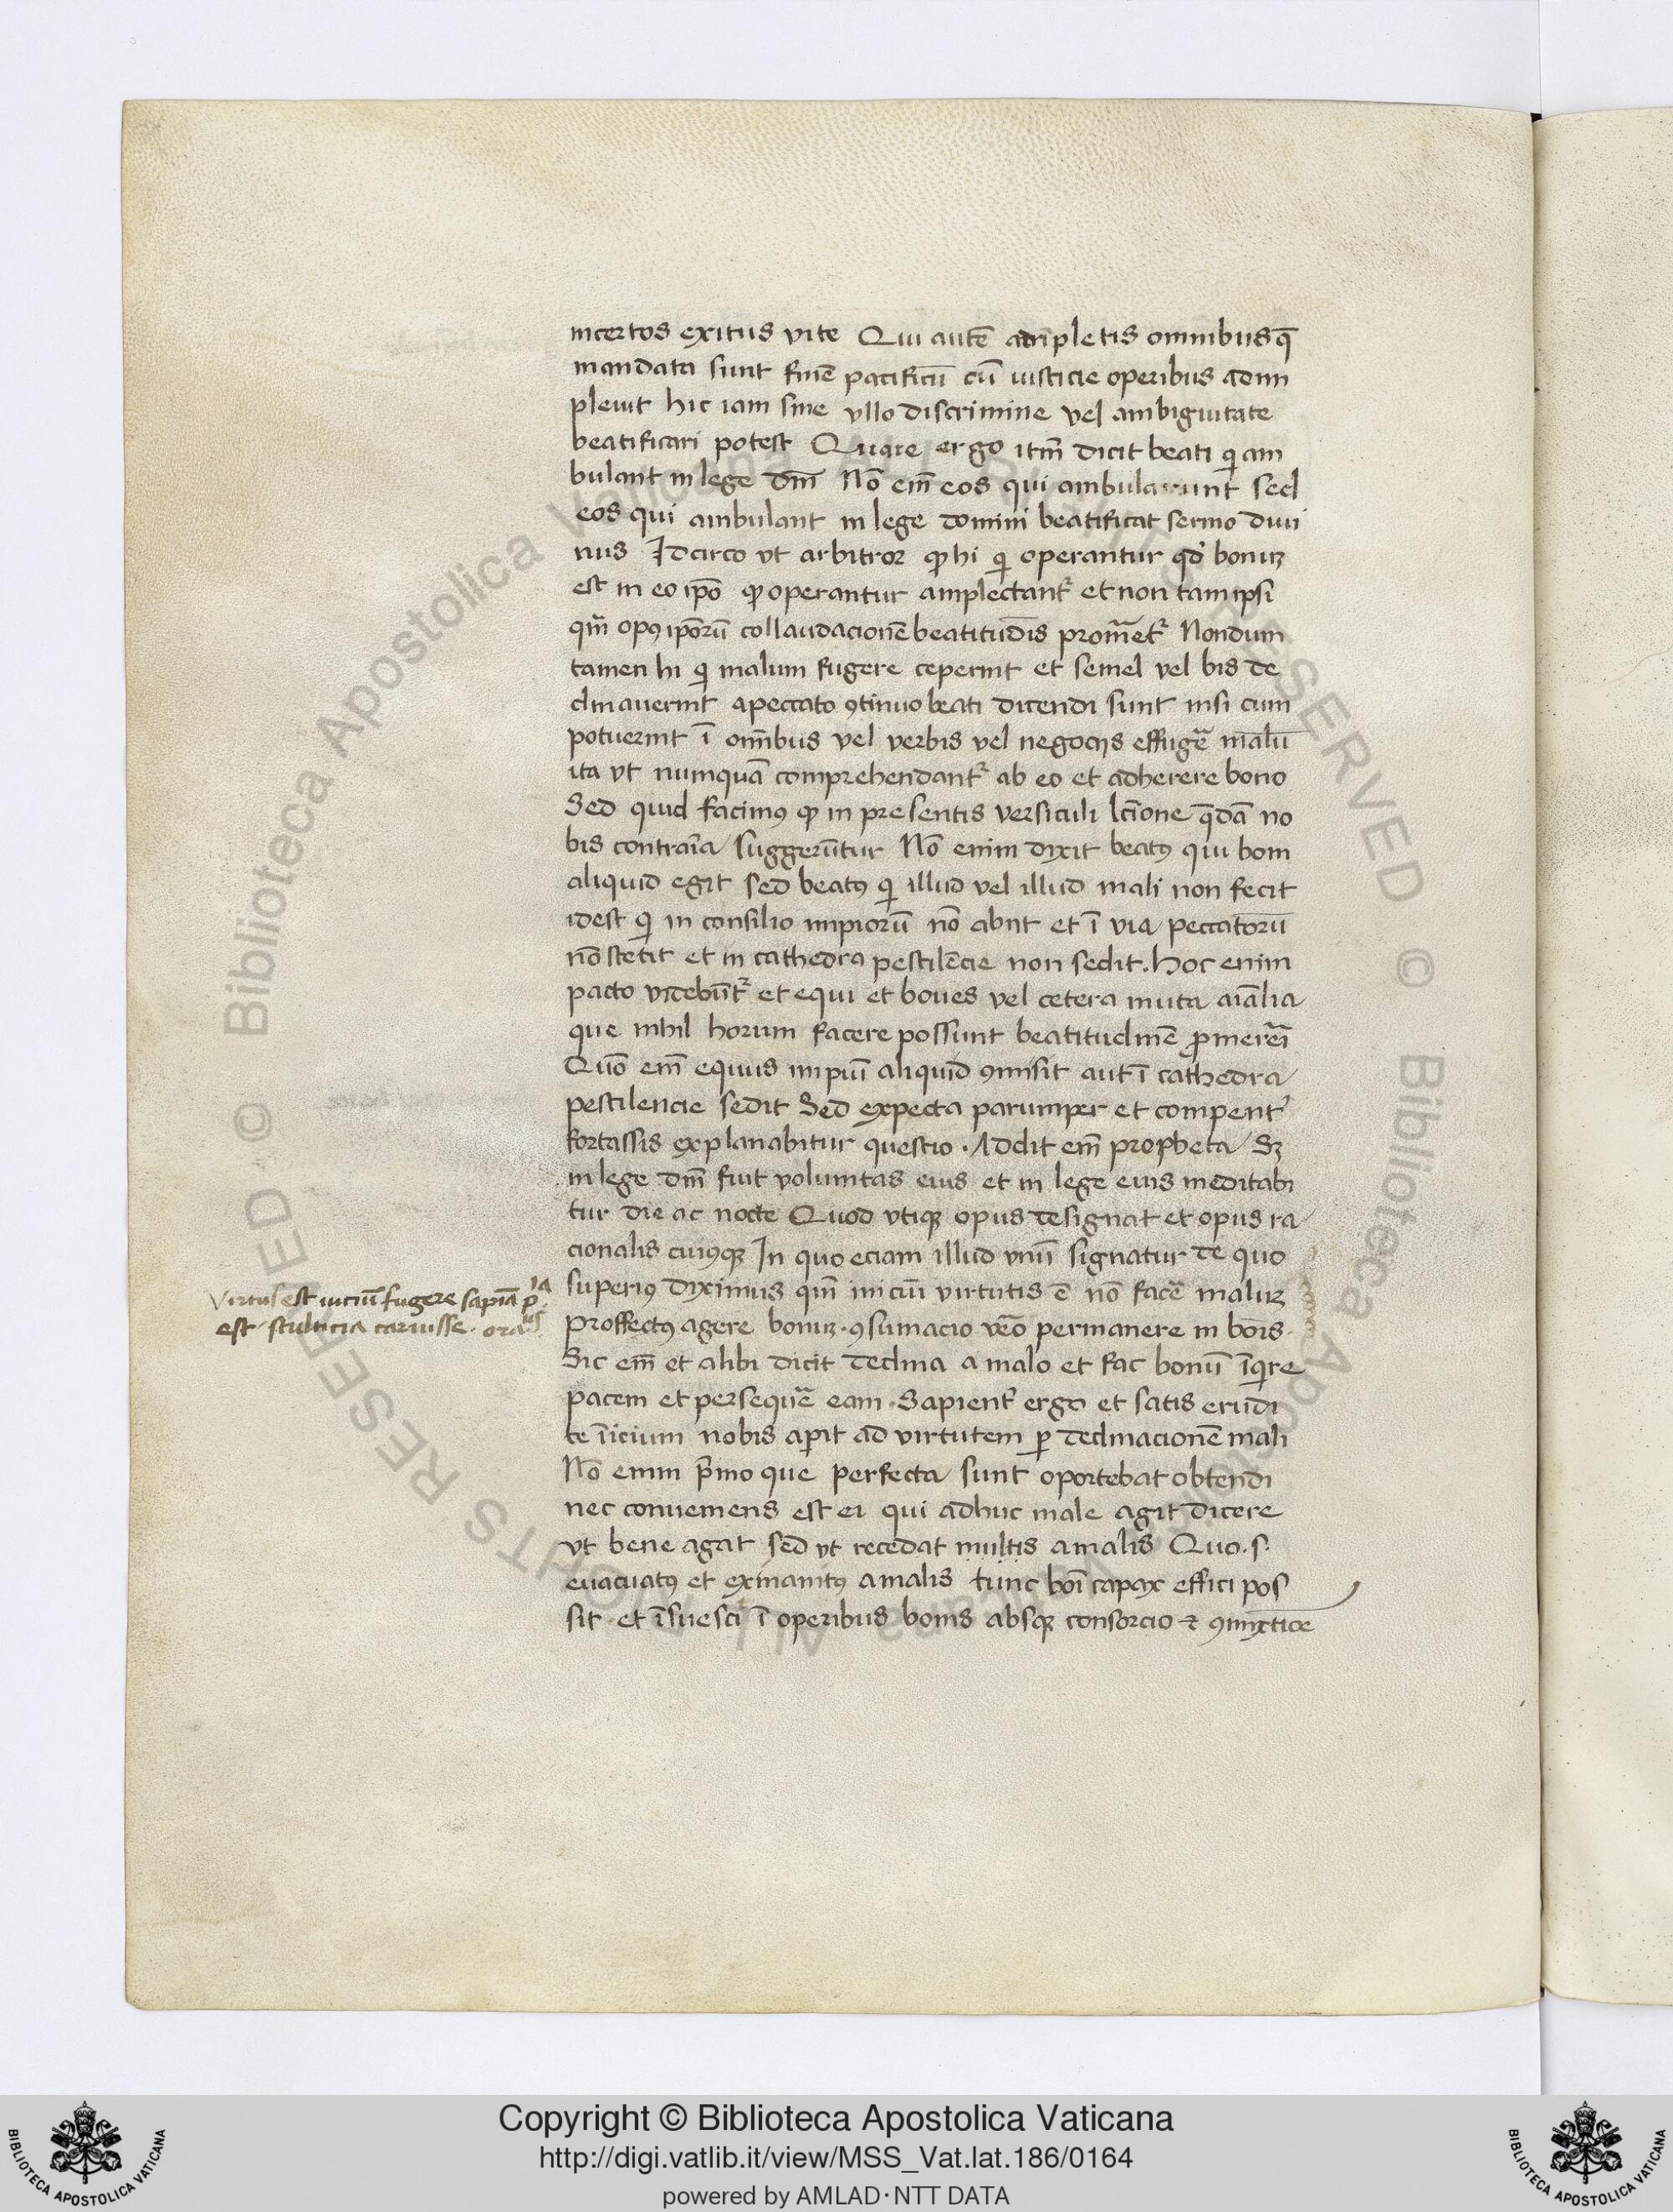 incertos exitus vite Qui autē adīpletis omnibus q̄
mandata sunt finē pacificū cū iusticie operibus adim
pleuit hic iam sine vllo discrimine vel ambiguitate
beatificari potest Quare ergo itm̄ dicit beati qi am
bulant in lege dm̄ Nō em̄ eos qui ambulauerunt sed
eos qui ambulant in lege domini beatificat sermo diui
nus Idcirco vt arbitror qꝫ hi qi operantur qd̓ bonuꝫ
est in eo ipō qꝫ operantur amplectantᷣ et non tam ipsi
qm̄ opꝰ ipōrū collaudacionē beatitudīs promēetᷣ Nondum
tamen hi qi malum fugere ceperint et semel vel bis de
clinauerint a peccato ꝯtinuo beati dicendi sunt nisi cum
potuerint ī om̄ibus vel verbis vel negocijs effugē malū
ita vt numquā comprehendantᷣ ab eo et adherere bono
Sed quid facimꝰ qꝫ in presentis versiculi lcīone q̄dā no
bis contrār̄ia suggerūtur Nō enim dixit beatꝰ qui boni
aliquid egit sed beatꝰ qi illud vel illud mali non fecit
idest qi in consilio impiorū nō abijt et ī via peccatorū
nō stetit et in cathedra pestilēcie non sedit. Hoc enim
pacto videbūtᷣ et equi et boues vel cetera muta aīalia
que nihil horum facere possunt beatitudinē ꝓmererī
Quō em̄ equus impiū aliquid ꝯmisit aut ī cathedra
pestilencie sedit Sed expecta parumper et compentᷣ
fortassis explanabitur questio. Addit em̄ propheta Sꝫ
in lege dm̄ fuit voluntas eius et in lege eius meditabi
tur die ac nocte Quod vtiqꝫ opus designat et opus ra
cionalis cuiꝰqꝫ In quo eciam illud vnū signatur de quo
superiꝰ diximus qm̄ iniciū virtutis ē nō facē maluꝫ
Proffectꝰ agere bonuꝫ. ꝯsumacio vēo permanere in boīs.
Sic em̄ et alibi dicit declina a malo et fac bonū īqire
pacem et persequē eam. Sapientᷣ ergo et satis erudi
te īicium nobis apit ad virtutem ꝑ declinacionē mali
Nō enim pīmo que perfecta sunt oportebat obtendi
nec conueniens est ei qui adhuc male agit dicere
vt bene agat sed vt recedat multis a malis Quo. s.
euacuatꝰ et exinanitꝰ a malis tunc boī capax effici pos
sit. et īsuesci ī operibus bonis absqꝫ consorcio ⁊ ꝯmixtiōe
Virtus est uiciū fugere sapīa p̄ᵃ
est. stulticia caruisse. oraᵘˢ
Copyright © Biblioteca Apostolica Vaticana
http://digi.vatlib.it/view/MSS_Vat.lat.186/0164
powered by AMLAD · NTT DATA